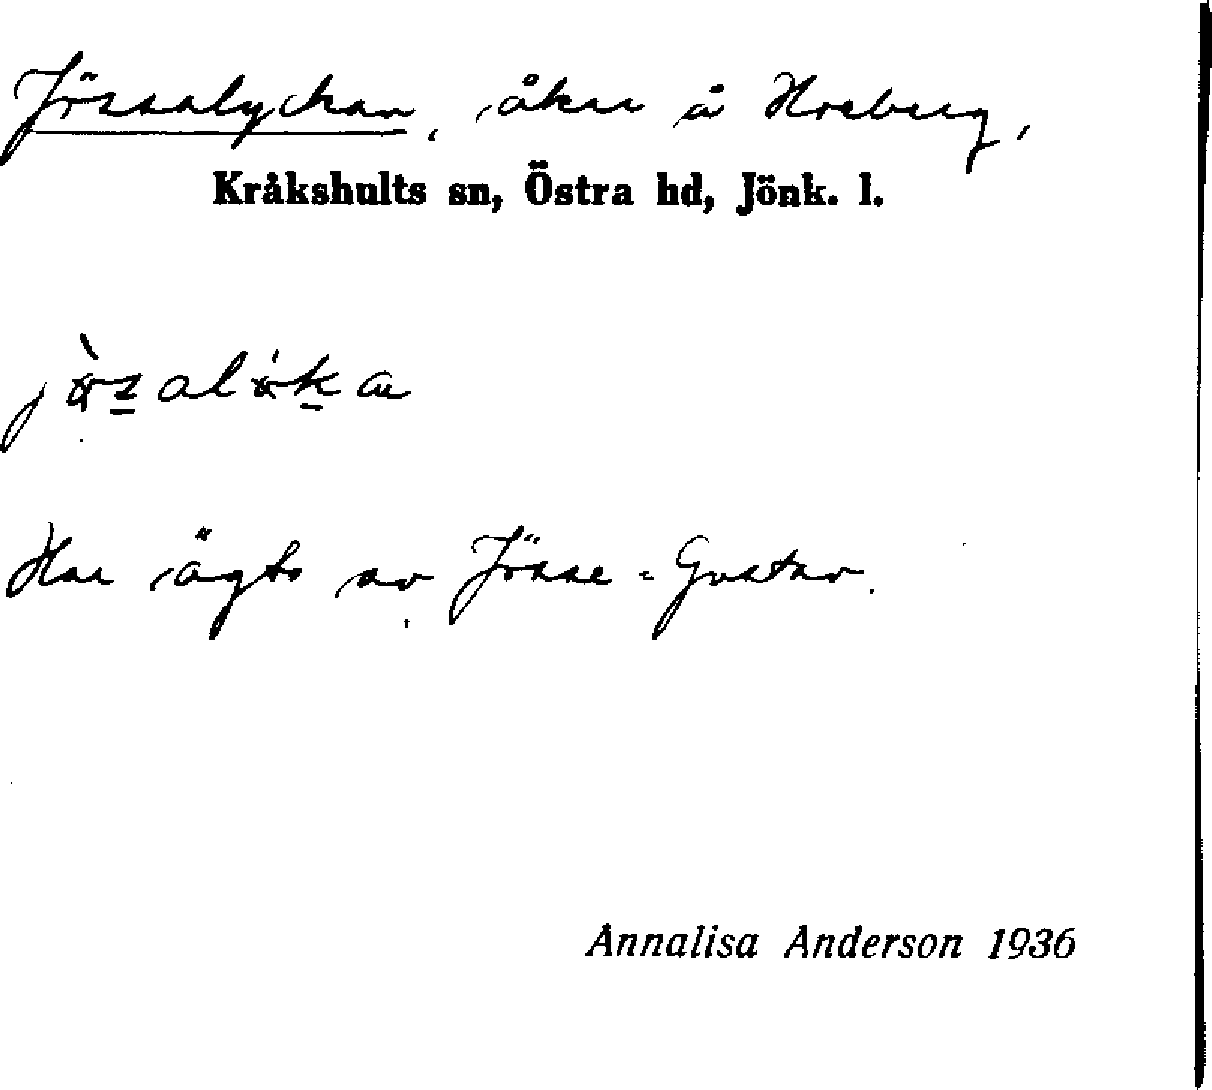 Jössalyckan, åker å
Kråkshults sn, Östra hd, Jönk. l.
Har ägts av Jösse-Gustav.
Annalisa Anderson 1936